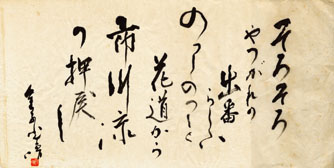 そろそろ
やつがれの
出番
らしい
のつしのつしと
花道から
市川流
の押戻し